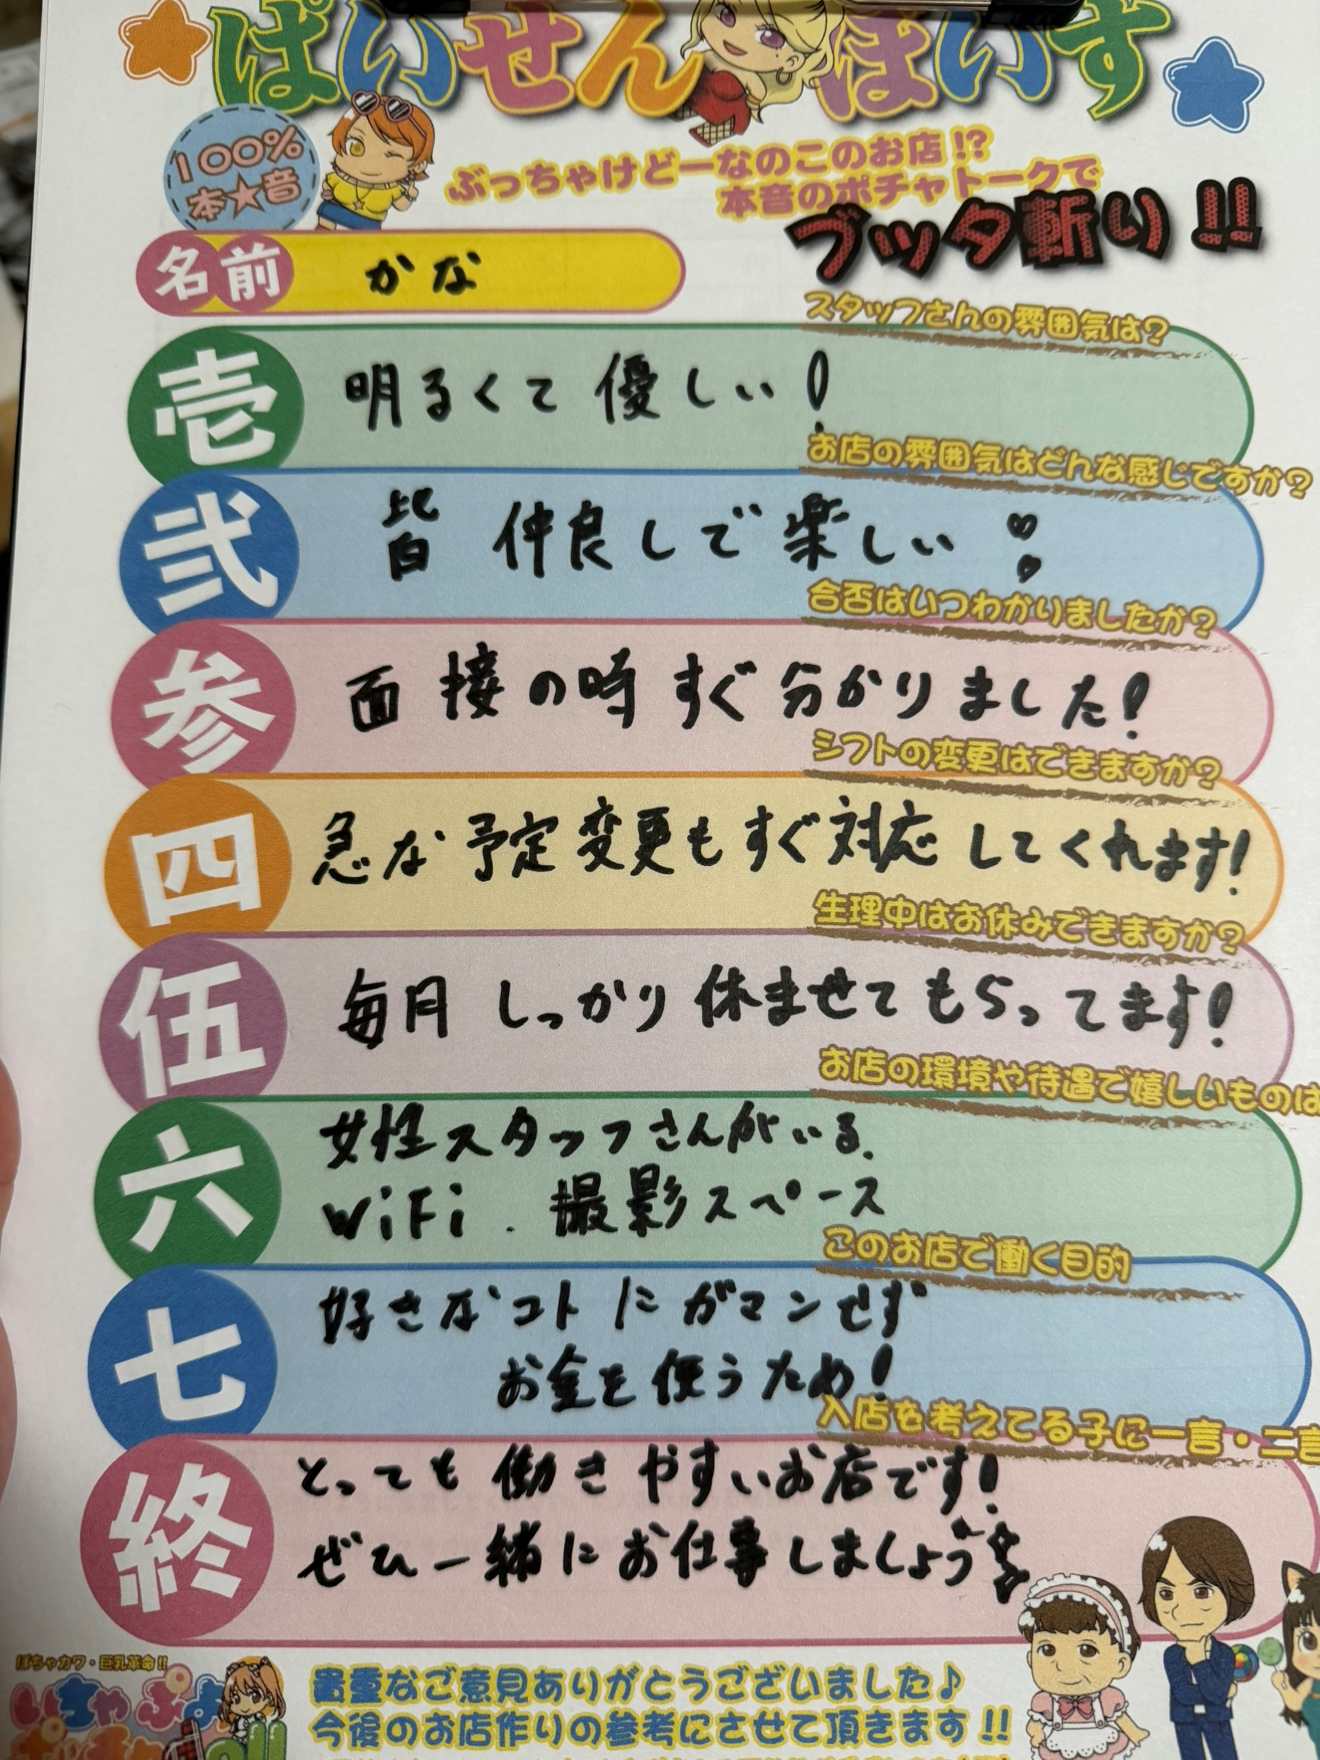 ぱいせんぼいす
100%
本★音
ぶっちゃけどーなのこのお店!?
本音のポチャトークで
ブッタ斬り!!
名前
かな
スタッフさんの雰囲気は?
壱
明るくて優しい!
お店の雰囲気はどんな感じですか?
弐
皆仲良しで楽しい
合否はいつわかりましたか?
参
面接の時すぐ分かりました!
シフトの変更はできますか?
四
急な予定変更もすぐ対応してくれます!
生理中はお休みできますか?
伍
毎月しっかり休ませてもらってます!
お店の環境や待遇で嬉しいものは
六
女性スタッフさんがいる.
WiFi.撮影スペース
このお店で働く目的
七
好きなコトにガマンせず
お金を使うため!
入店を考えてる子に一言・二言
終
とっても働きやすいお店です!
ぜひ一緒にお仕事しましょう
ぽちゃカワ・巨乳革命!!
いちゃぷよ
貴重なご意見ありがとうございました♪
今後のお店作りの参考にさせて頂きます!!